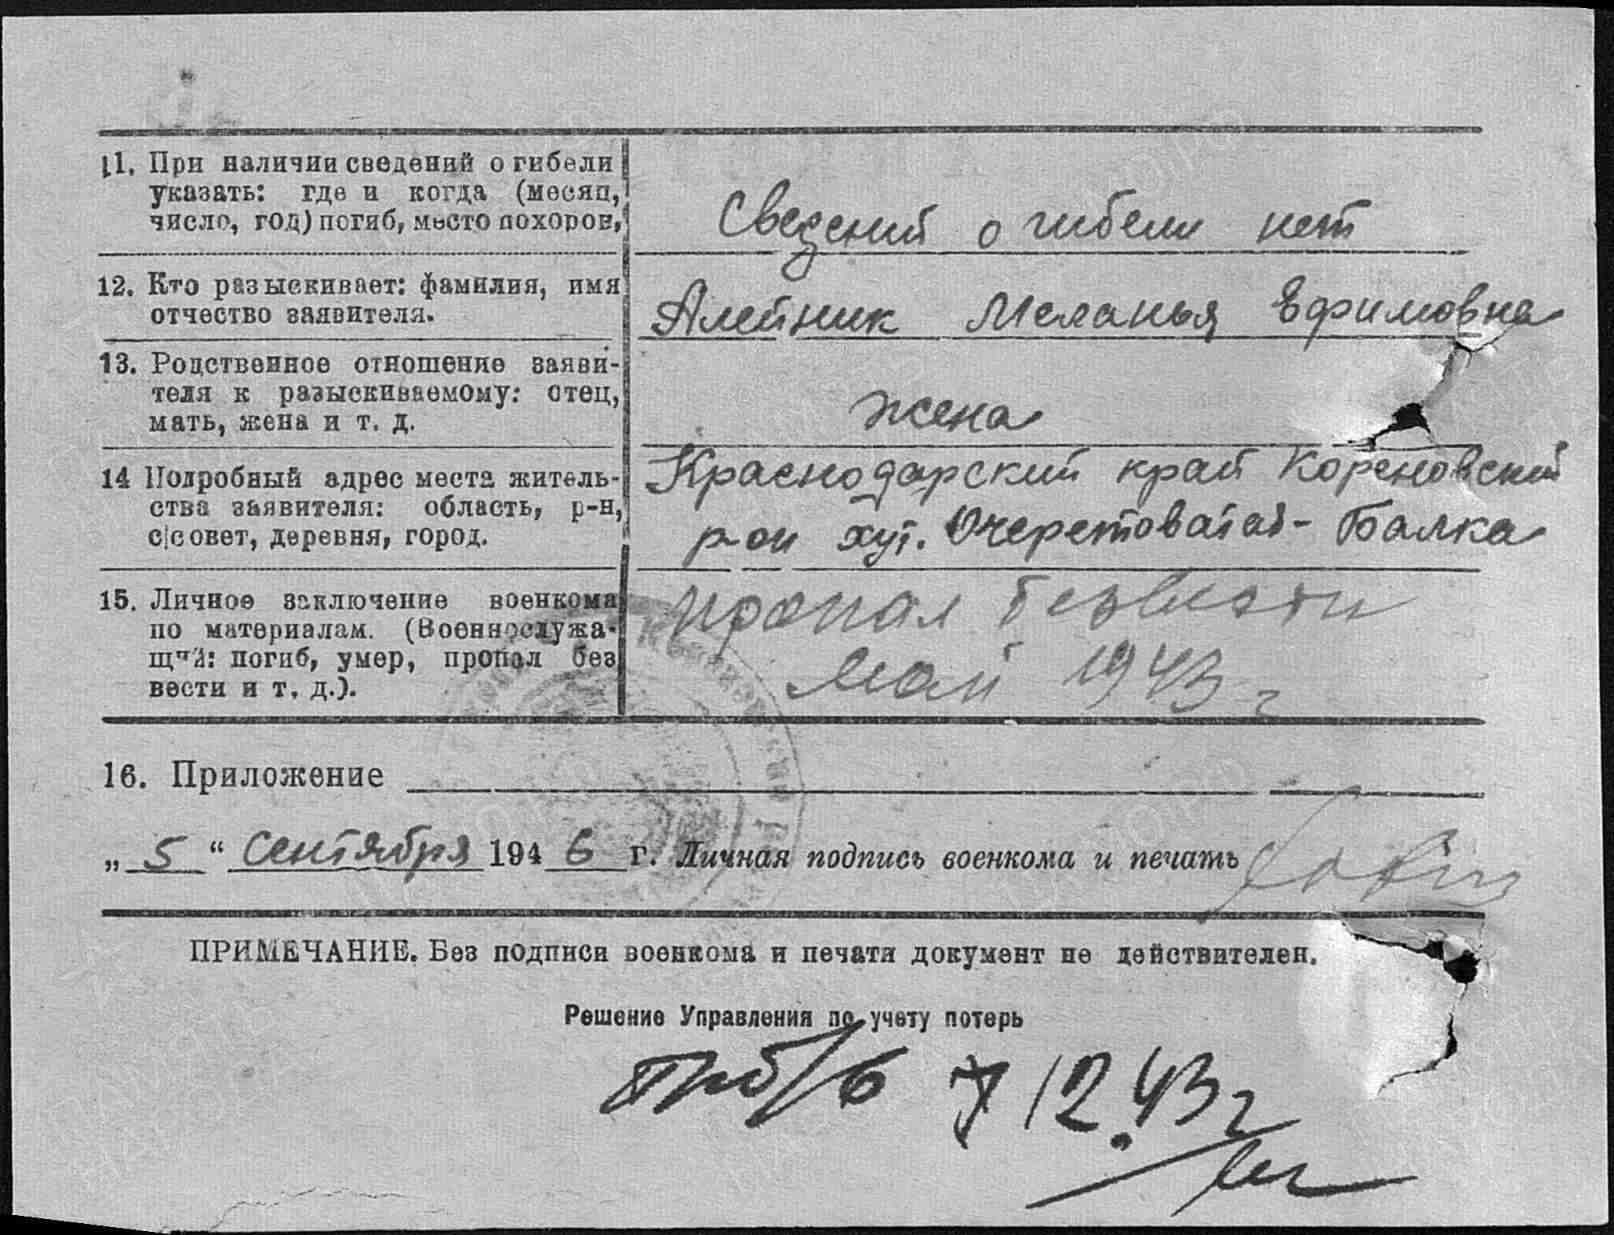 11. При наличии сведений о гибели
указать: где и когда (месяц,
число, год) погиб, место похорон,
Сведений о гибели нет
12. Кто разыскивает: фамилия, имя
отчество заявителя.
Алейник Меланья Ефимовна
13. Родственное отношение заяви-
теля к разыскиваемому: отец,
мать, жена и т. д.
жена
14 Подробный адрес места житель-
ства заявителя: область, р-н,
с|совет, деревня, город.
Краснодарский край Кореновский
р-он хут. Очеретоватая-Балка
15. Личное заключение военкома
по материалам. (Военнослужа-
щий: погиб, умер, пропал без
вести и т. д.).
пропал безвести
май 1943 г
16. Приложение
„ 5 “ Сентября 194 6 г. Личная подпись военкома и печать
ПРИМЕЧАНИЕ. Без подписи военкома и печати документ не действителен.
Решение Управления по учету потерь
12.43 г